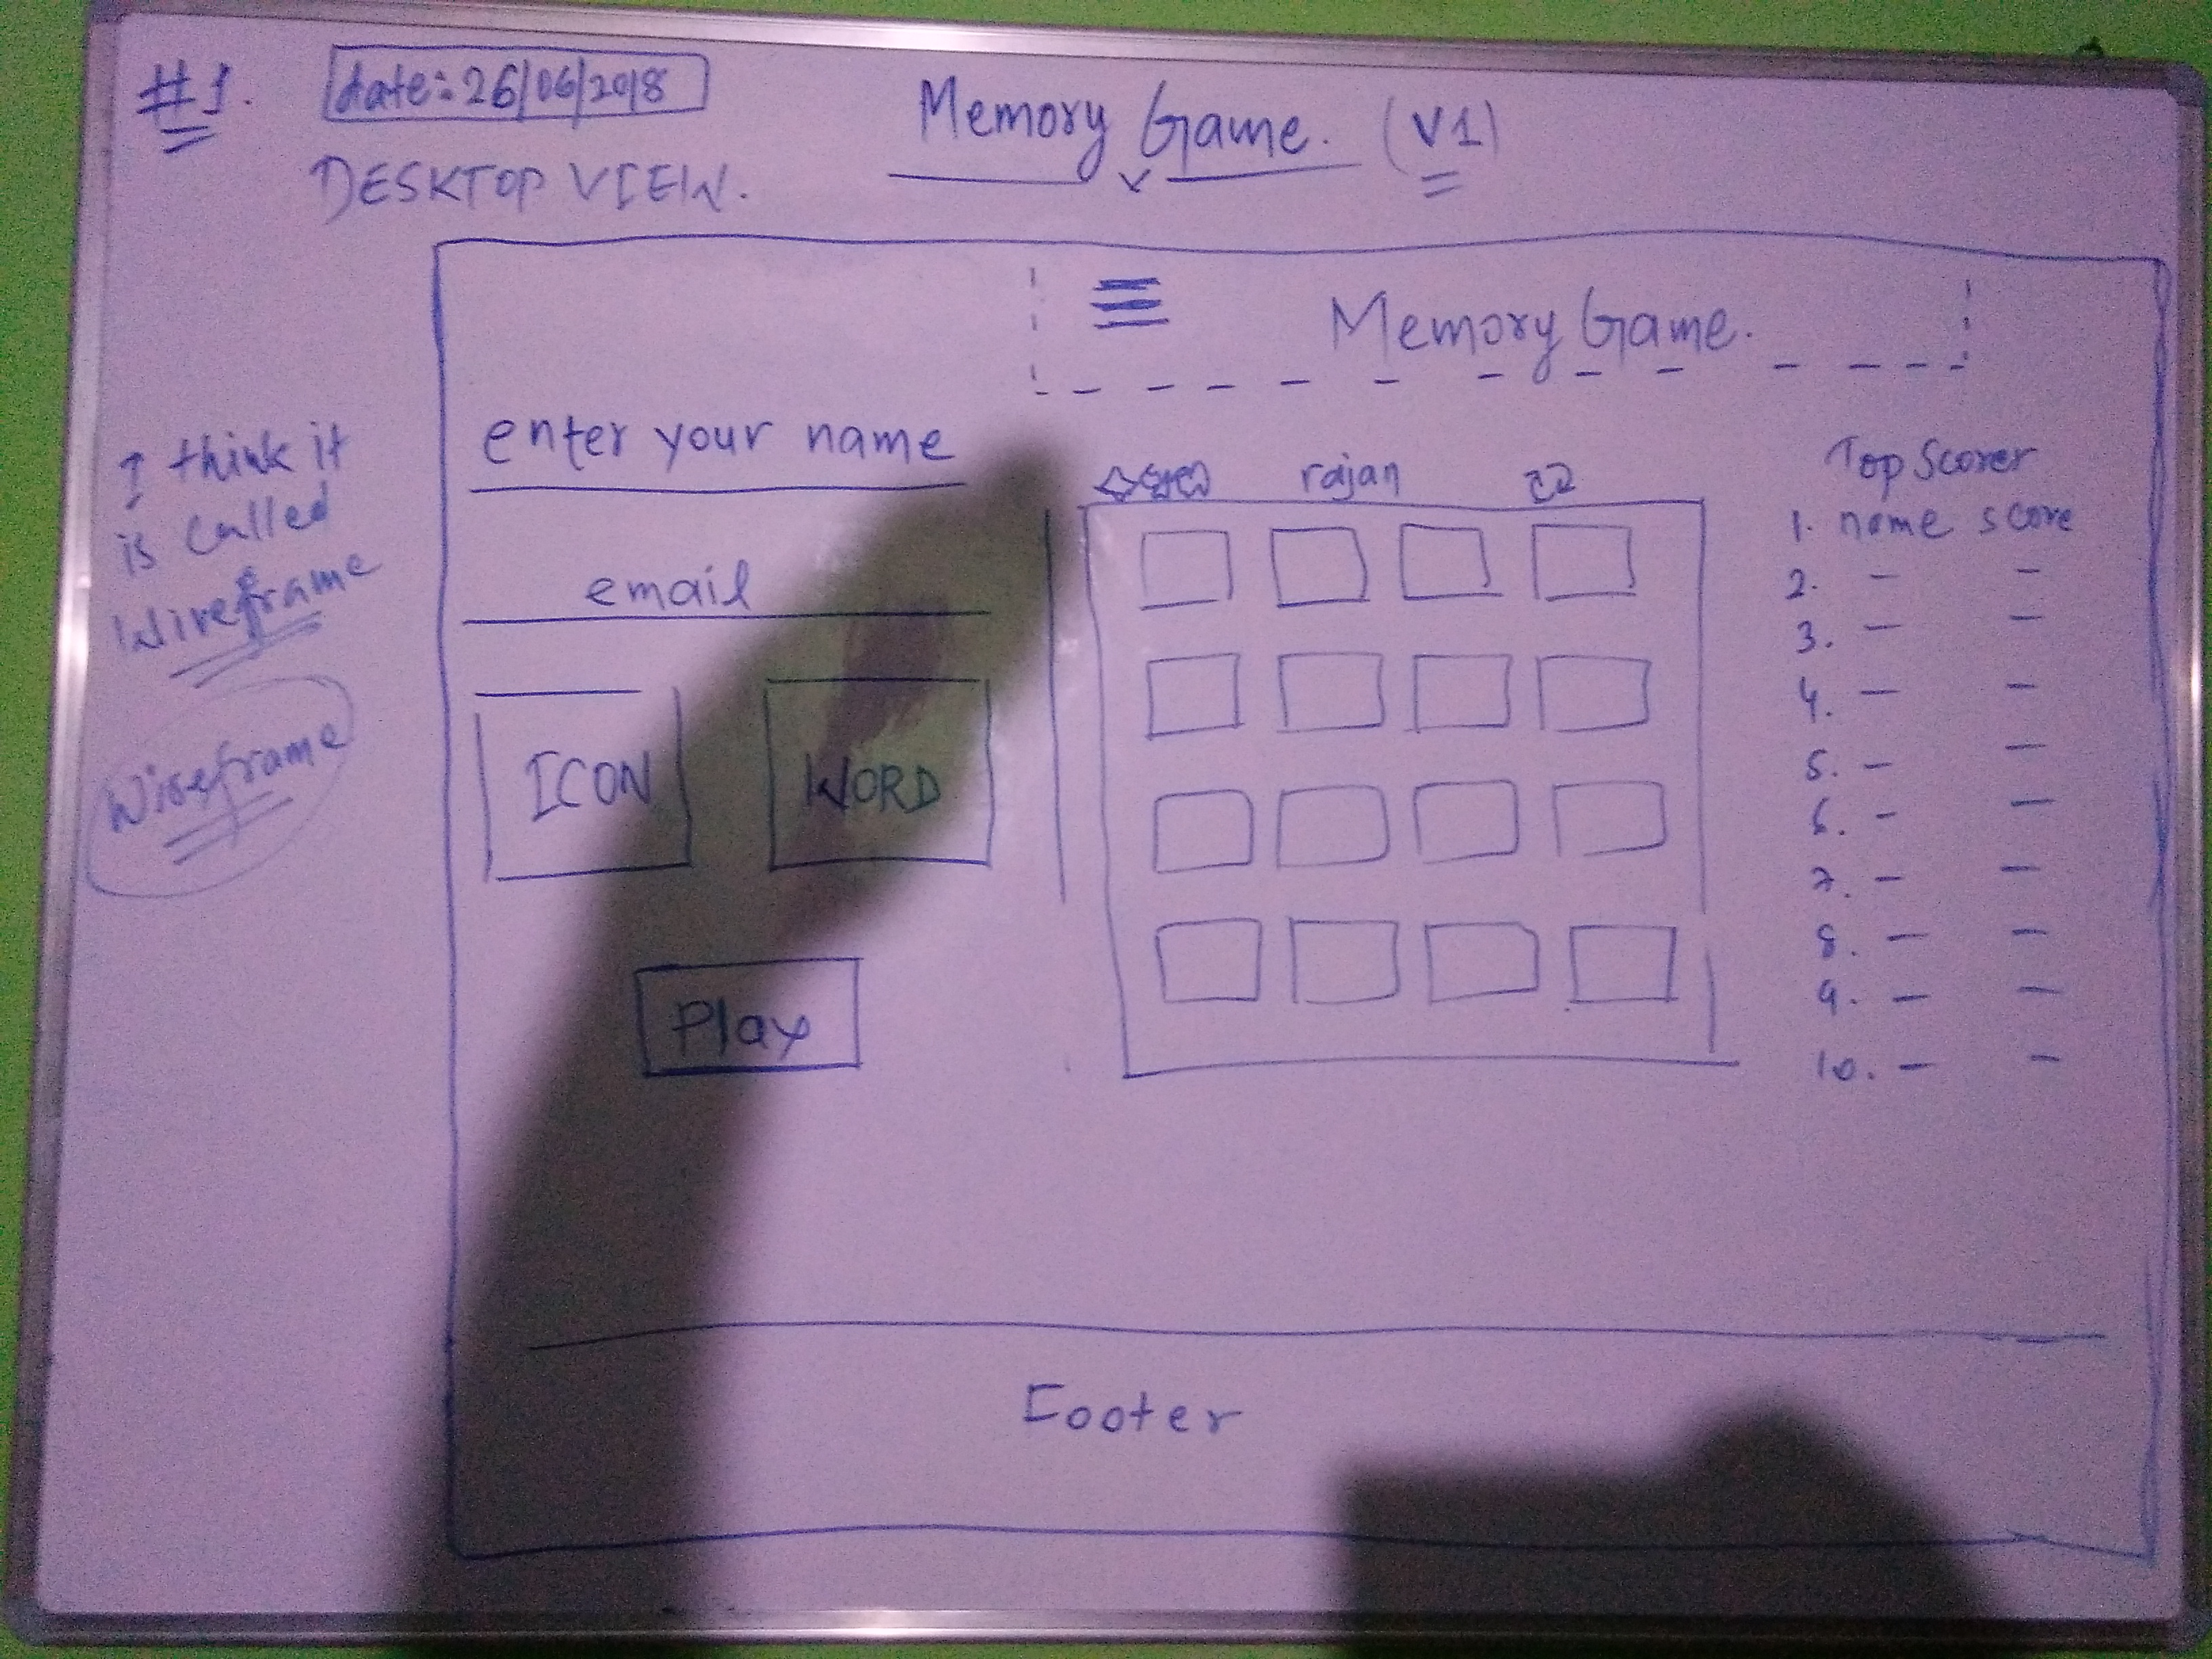 #1.
date: 26/06/2018
Memory Game. (V1)
DESKTOP VIEW.
I think it
is called
Wireframe
Wireframe
Memory Game.
enter your name
email
ICON
WORD
Play
rajan
Top Scorer
1. name score
2. - -
3. - -
4. - -
5. - -
6. - -
7. - -
8. - -
9. - -
10. - -
Footer